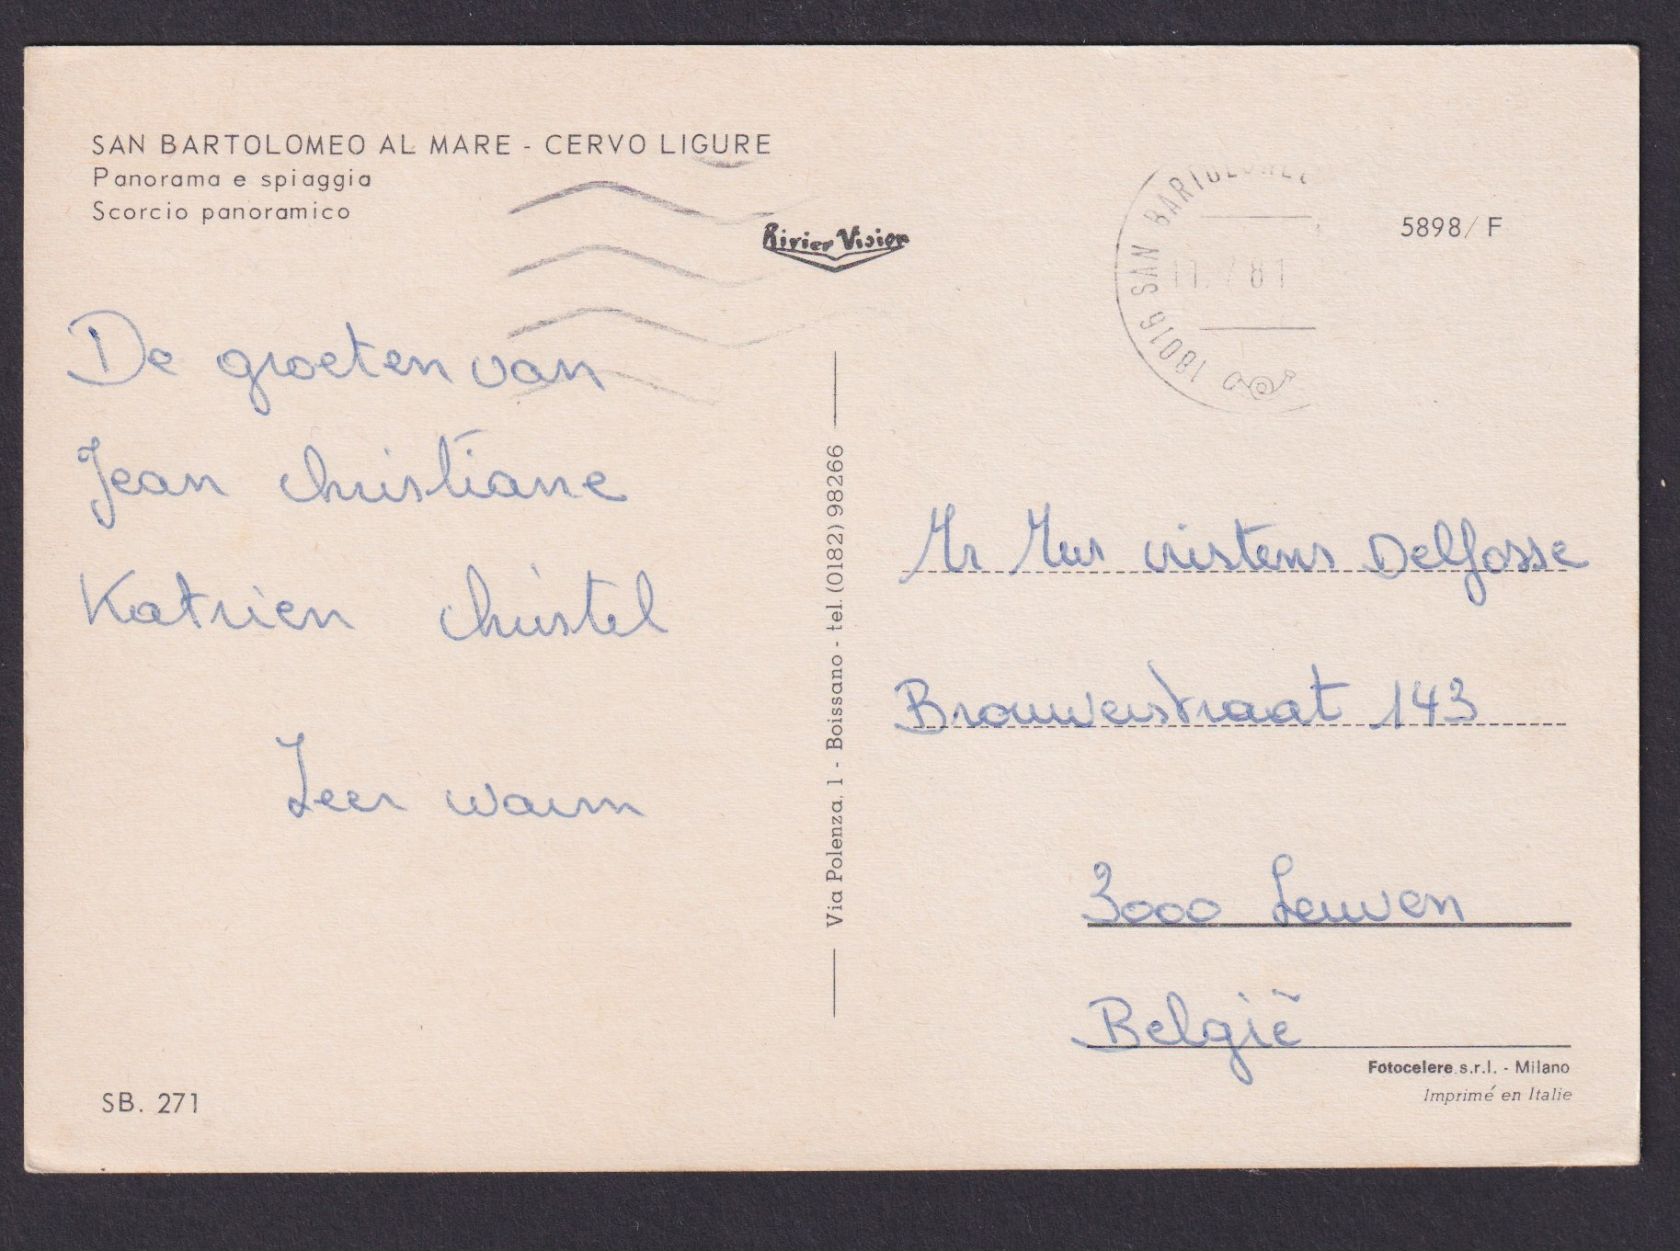 SAN BARTOLOMEO AL MARE - CERVO LIGURE
Panorama e spiaggia
Scorcio panoramico
Rivier Vision
18016 SAN BARTOLOMEO
81
5898/F
De groeten van
Jean Christiane
Katrien Christel
Zeer warm
SB. 271
Via Polenza, 1 - Boissano - tel. (0182) 98266
Mr Mevr Cristens Delfosse
Brouwerstraat 143
3000 Leuven
België
Fotocelere s.r.l. - Milano
Imprimé en Italie